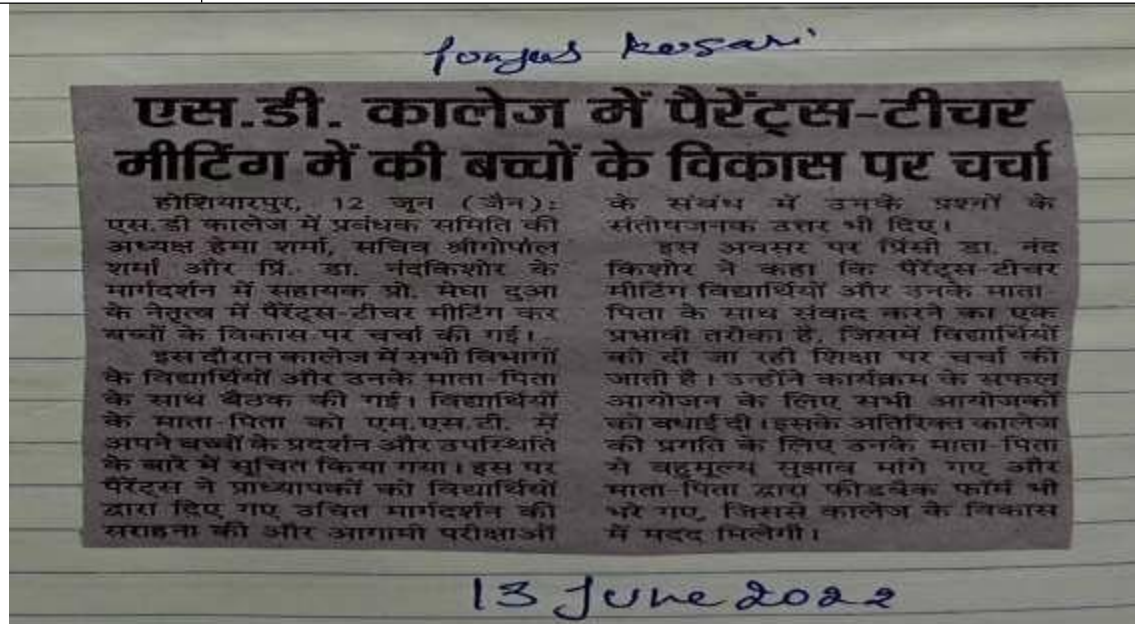 Punjab Kesari
एस.डी. कालेज में पैरेंट्स-टीचर
मीटिंग में की बच्चों के विकास पर चर्चा
होशियारपुर, 12 जून (जैन):
एस.डी कालेज में प्रबंधक समिति की
अध्यक्ष हेमा शर्मा, सचिव श्रीगोपाल
शर्मा और प्रिं. डा. नंदकिशोर के
मार्गदर्शन में सहायक प्रो. मेघा दुआ
के नेतृत्व में पैरेंट्स-टीचर मीटिंग कर
बच्चों के विकास पर चर्चा की गई।
इस दौरान कालेज में सभी विभागों
के विद्यार्थियों और उनके माता-पिता
के साथ बैठक की गई। विद्यार्थियों
के माता-पिता को एम.एस.टी. में
अपने बच्चों के प्रदर्शन और उपस्थिति
के बारे में सूचित किया गया। इस पर
पैरेंट्स ने प्राध्यापकों को विद्यार्थियों
द्वारा दिए गए उचित मार्गदर्शन की
सराहना की और आगामी परीक्षाओं
के संबंध में उनके प्रश्नों के
संतोषजनक उत्तर भी दिए।
इस अवसर पर प्रिंसी डा. नंद
किशोर ने कहा कि पैरेंट्स-टीचर
मीटिंग विद्यार्थियों और उनके माता-
पिता के साथ संवाद करने का एक
प्रभावी तरीका है, जिसमें विद्यार्थियों
को दी जा रही शिक्षा पर चर्चा की
जाती है। उन्होंने कार्यक्रम के सफल
आयोजन के लिए सभी आयोजकों
को बधाई दी। इसके अतिरिक्त कालेज
की प्रगति के लिए उनके माता-पिता
से बहुमूल्य सुझाव मांगे गए और
माता-पिता द्वारा फीडबैक फॉर्म भी
भरे गए, जिससे कालेज के विकास
में मदद मिलेगी।
13 June 2022